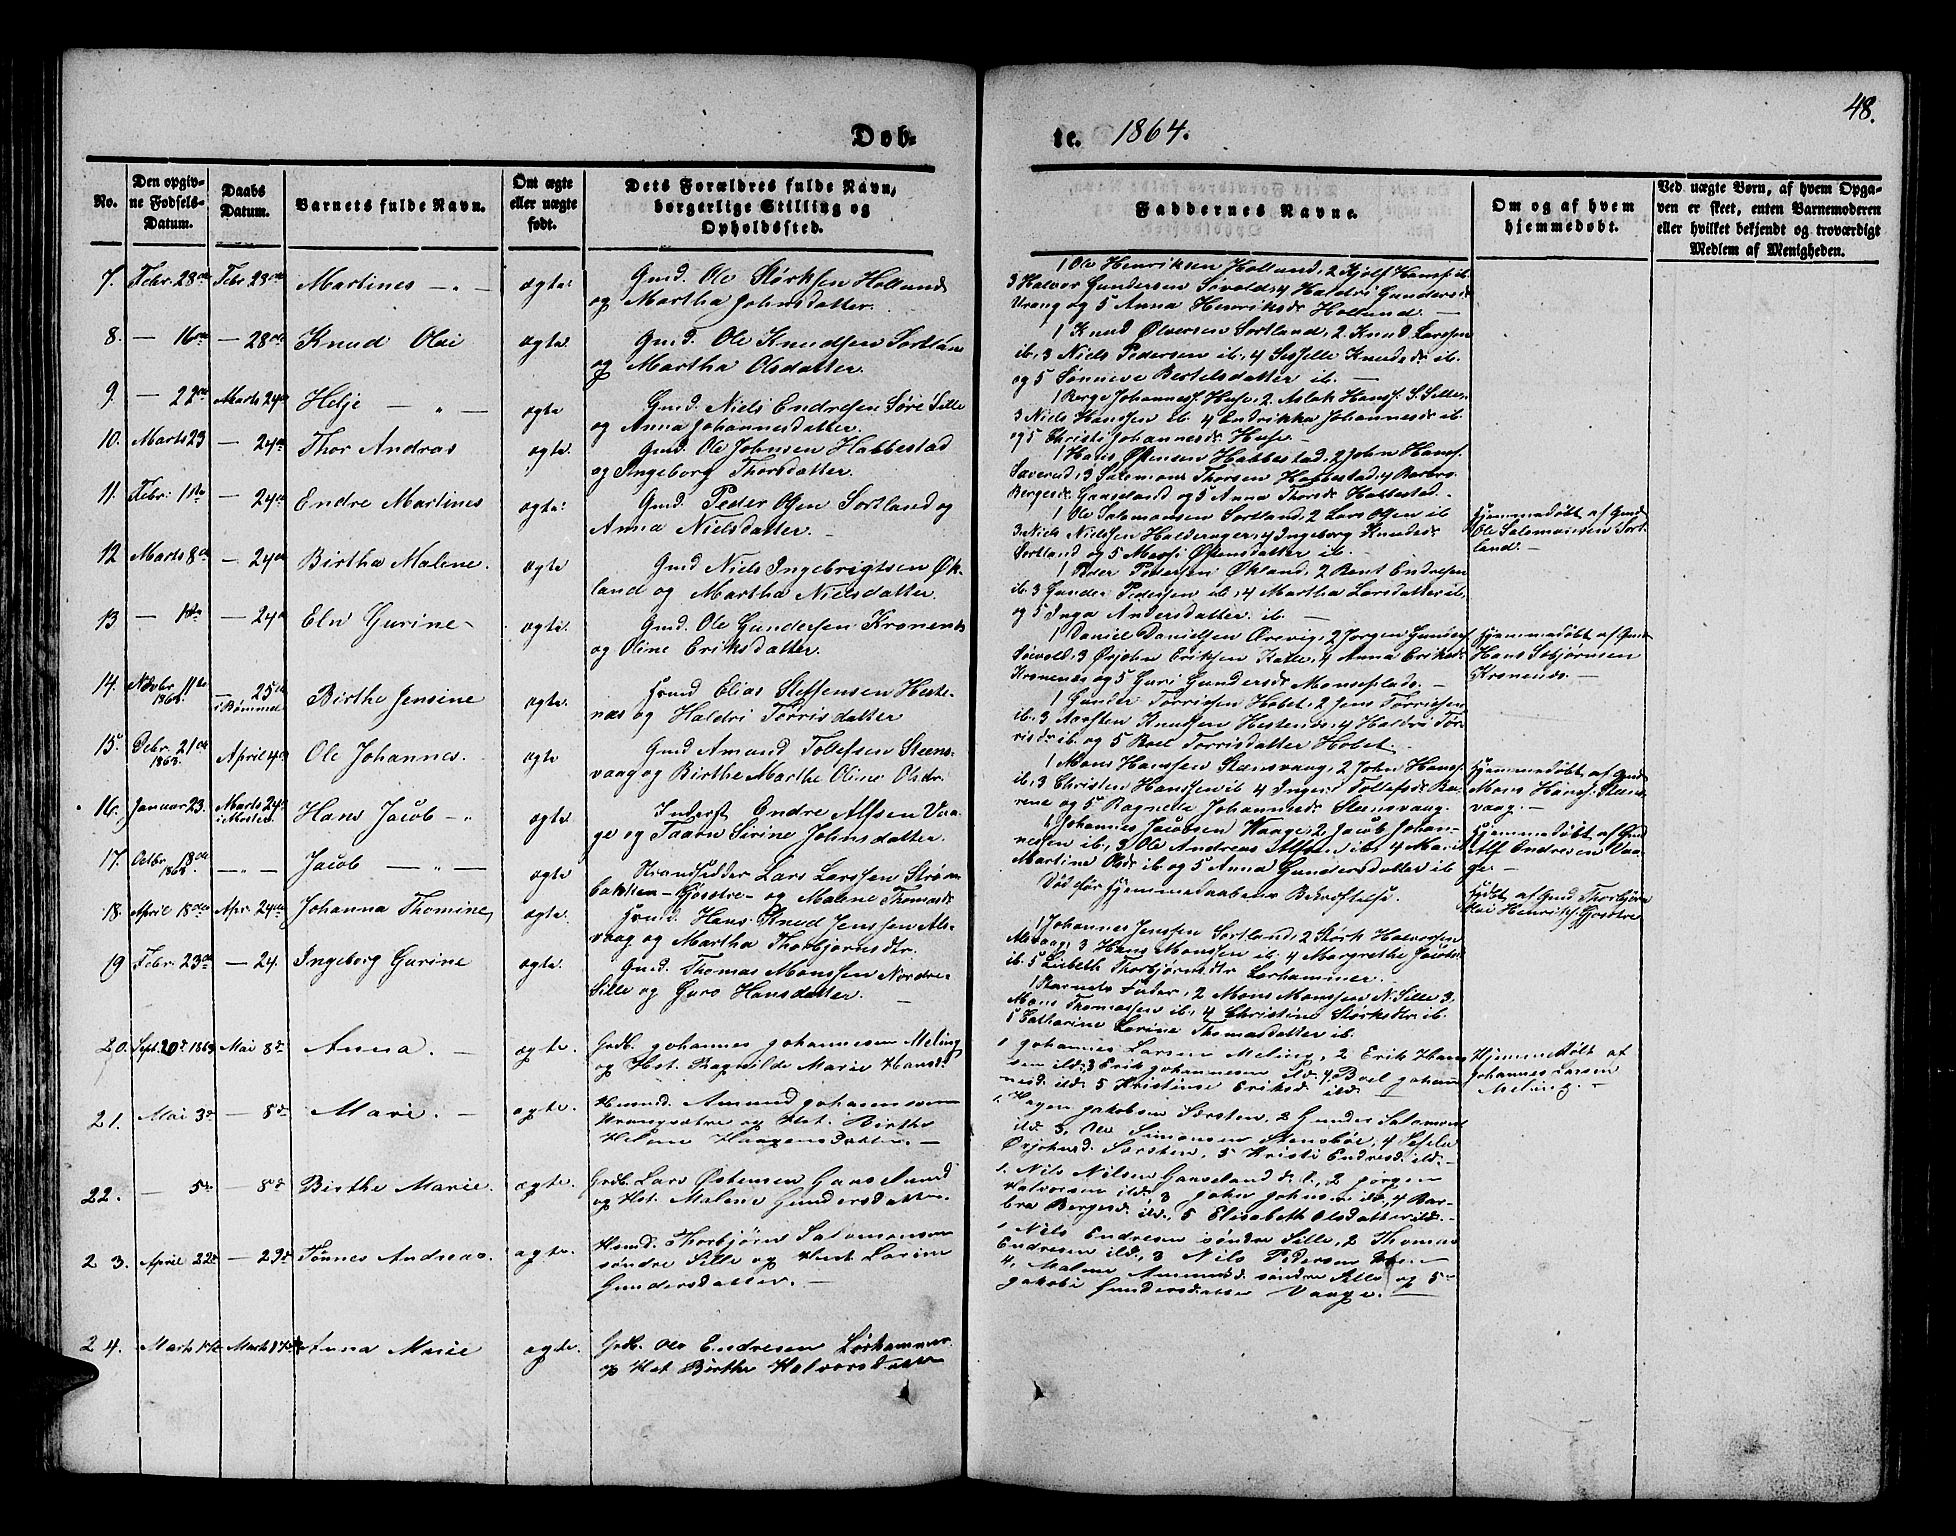 48.
Døb-
te. 1864.
No.
Den opgiv-
ne Fødsels-
Datum.
Daabs
Datum.
Barnets fulde Navn.
Om ægte
eller uægte
født.
Dets Forældres fulde Navn,
borgerlige Stilling og
Opholdssted.
Faddernes Navne.
Om og af hvem
hjemmedøbt.
Ved uægte Børn, af hvem Opga-
ven er skeet, enten Barnemoderen
eller hvilket bekjendt og troværdigt
Medlem af Menigheden.
7. Febr. 28de Febr. 28de Martines — „ — ægte: Gmd. Ole Størksen Holland
og Martha Johnsdatter.
1 Ole Henriksen Holland, 2 Kjøl Hansf. ib.
3 Halvor Gundersen Søvold, 4 Haldri Gundersdr
Vrang og 5 Anna Henriksdr Holland. —
8. — 16de — 28de Knud Olai ægte. Gmd. Ole Knudsen Sortland
og Martha Olsdatter.
1 Knud Ølversen Sortland, 2 Knud Larssen
ib, 3 Niels Pedersen ib, 4 Sisselle Knudsdr ib.
og 5 Sønneve Bertelsdatter ib. —
9. — 22de Marts 24de Helje — „ — ægte Gmd. Niels Endresen Søre Sille
og Anna Johannesdatter.
1 Berge Johannesf. Huse, 2. Aslak Hansf. S. Sille,
3 Niels Hanssen ib 4 Endrikka Johannesdr ib.
og 5 Christi Johannesdr Huse —
10. Marts 23 — 24de Thor Andras ægte. Gmd. Ole Johnsen Habbestad
og Ingeborg Thorsdatter.
1 Hans Østensen Habbestad, 2 John Hansf.
3 Salomons Thorsen Habbestad, 4 Barbro
Bergesdr Gaaseland og 5 Anna Thorsdr Habbestad. —
11. Febr. 11te — 24de Endre Martines ægte: Gmd. Peder Olsen Sortland og
Anna Nielsdatter. —
1 Ole Salamonsen Sortland, 2 Lars Olsen ib
3. Niels Nielssen Halderager, 4 Ingeborg Knudsdr
Sortland og 5 Massi Østensdatter ib. —
Hjemmedøbt af Gmd.
Ole Salomonsen Sort-
land. —
12 Marts 8de — 24de Birtha Malene. ægte Gmd Niels Ingebrigtsen Øk-
land og Martha Nielsdatter.
1 Peder Pedersen Økland, 2 Bent Endresen
ib. 3 Gunder Pederssen ib, 4 Martha Larsdatter ib
og 5 Inga Andersdatter. ib. —
13 — 24de Eln Gurine — ægte. Gmd. Ole Gundersen Kronenæs
og Oline Eriksdatter.
1 Daniel Danielsen Ørevig, 2 Jørgen Gundersf
Søevold, 3 Ørjohn Eriksen Katle, 4 Anna Eriksdr
Kronenæs og 5 Guri Gundersdr Monseplads. —
Hjemmedøbt af Gmd
Hans Asbjørnsen
Kronenæs. —
14. Novbr. 11te
1863. — 25de
i Bømmel Birthe Jensine ægte. Hmd Elias Steffensen Heste-
næs og Haldri Torrisdatter
1 Gunder Torrissen Hobet, 2 Jens Torrissen
ib. 3 Knudsen Hestenæs, 4 Haldri Tor-
risdr ib og 5 Boel Torrisdatter Hobet.
15. Debr. 21de
1863. April 4de Ole Johannes. ægte Gmd Amund Tollefsen Steens-
vaag og Birthe Marthe Oline Olsdr.
1 Mons Hanssen Steensvaag, 2 John Hansf.
ib, 3 Christen Hanssen ib 4 Inger Tollefsdr Ba-
rene og 5 Ragnela Johannesdr Steensvaag.
Hjemmedøbt af Gmd
Mons Hansf. Steens-
vaag. —
16. Januar 23. Marts 24de
i Mosten Hans Jacob — „ ægte Inderst Endre Alfsen Vaa-
ge og Taaon Serine Johnsdatter.
1 Johannes Jacobsen Waage, 2 Jacob Johan-
nessen ib, 3 Ole Andreas Alfsen ib, 4 Marit
Martine Olsdr ib og 5 Anna Gundersdatter ib
Hjemmedøbt af Gmd
Alf Endresen Vaa-
ge. —
17. Octbr. 18de
1863. — „ — Jacob — „ — ægte Strandsidder Lars Larssen Strøm-
bakken — Gjøsætre — og Malene Thomasdr
Død før Hjemmedaabens Bekræftelse.
Døbt af Gmd Thorbjørn
Olai Henriksf. Gjøsætre
18. April 18de Apr. 24de Johanna Thomine ægte. Hmd. Hans Knud Jenssen Als-
vaag og Martha Thorbjørnsdtr.
1 Johannes Jenssen Sortland, 2 Størk Halvorssen
Alsvaag, 3 Hans Monssen ib. 4 Margrethe Jacobsdr
ib. 5 Lisbeth Thorbjørnsdtr Lorhammer.
19 Febr. 23de — 24. Ingeborg Gurine ægte. Gmd. Thomas Monssen Nordre-
Sille og Guro Hansdatter. —
1 Barnets Fader, 2 Mons Monssen N. Sille 3.
Mons Thomassen ib, 4 Christine Størksdtr ib.
5 Catharine Larine Thomasdatter ib.
20. Sept. 20de 1863 Mai 8de Anna. — ægte. Grdb. Johannes Johannesen Meling
og Hst. Ragnilde Marie Hansd.
1 Johannes Larsen Meling, 2 Erik Han-
sen ild, 3 Erik Johannesen ild 4, Boel Johan-
nesd. ild. 5 Kristense Eriksd. ild. —
Hjemmedøbt af
Johannes Larsen
Meling. —
21. Mai 3de — 8de Marie. — ægte. Husmd. Amund Johannesen
Vrangsætre og Hst. Birthe
Helene Haagensdatter. —
1. Hagen Jakobsen Sørsten, 2 Gunder Salomons.
ild 3, Ole Simonsen Stensbøe, 4 Sisela
Ørjohnsd. Sørsten, 5 Kristi Endresd. ild. —
22. — 5te — 8de Birthe Marie. ægte. Grdb. Lars Østensen Gaaseland
og Hst. Malene Gundersdatter.
1. Nils Nilsen Gaaseland d. l., 2 Jørgen
Halvorsen ild. 3 John Johnsen ild., 4 Bar-
bra Bergesd. ild., 5 Elisabeth Olsdatter ild. —
23. April 22de — 29de Tønnes Andreas. ægte. Husmd. Thorbjörn Salomonsen
søndre Sille og Hust. Larine
Gundersdatter. —
1, Nils Endresen søndre Sille, 2 Thomas
Endresen ild., 3 Nils Pedersen
4, Malene Amundsd. søndre Sille og 5 —
Jakobi Gundersdatter Vaage. —
24. Marts 17de Marts 17de Anna Marie ægte. Grdb. Ole Endresen Lørhammer.
og Hst. Birthe Halvorsdatter